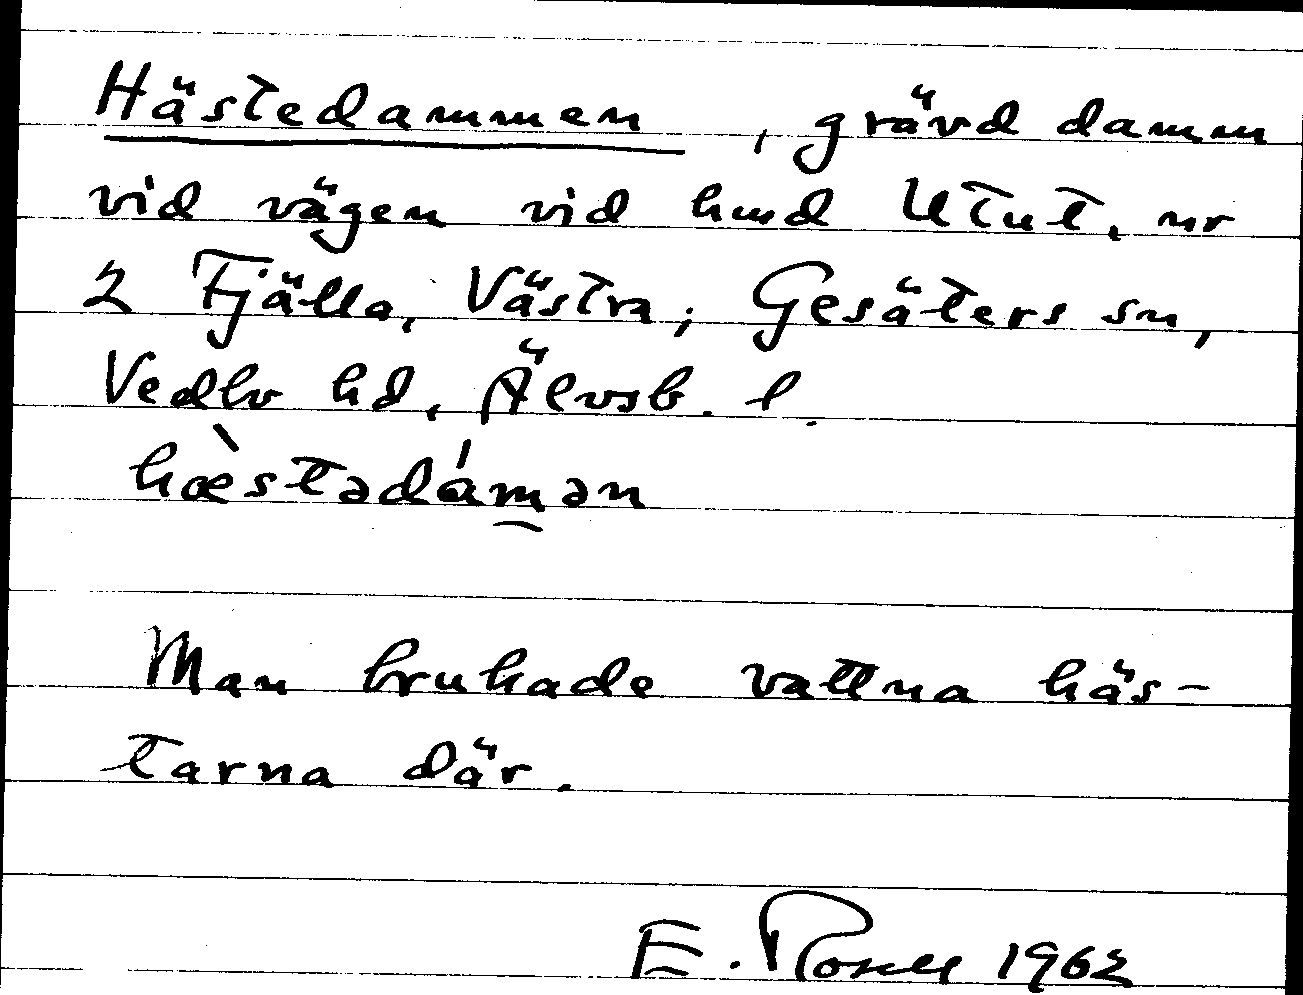 Hästedammen, grävd damm
vid vägen vid hmd Utut, nr
2 Fjälla, Västra, Gesäters sn,
Vedbo hd, Älvsb. l.
hæ̀stədámən
Man brukade vattna häs-
tarna där.
E. 1962